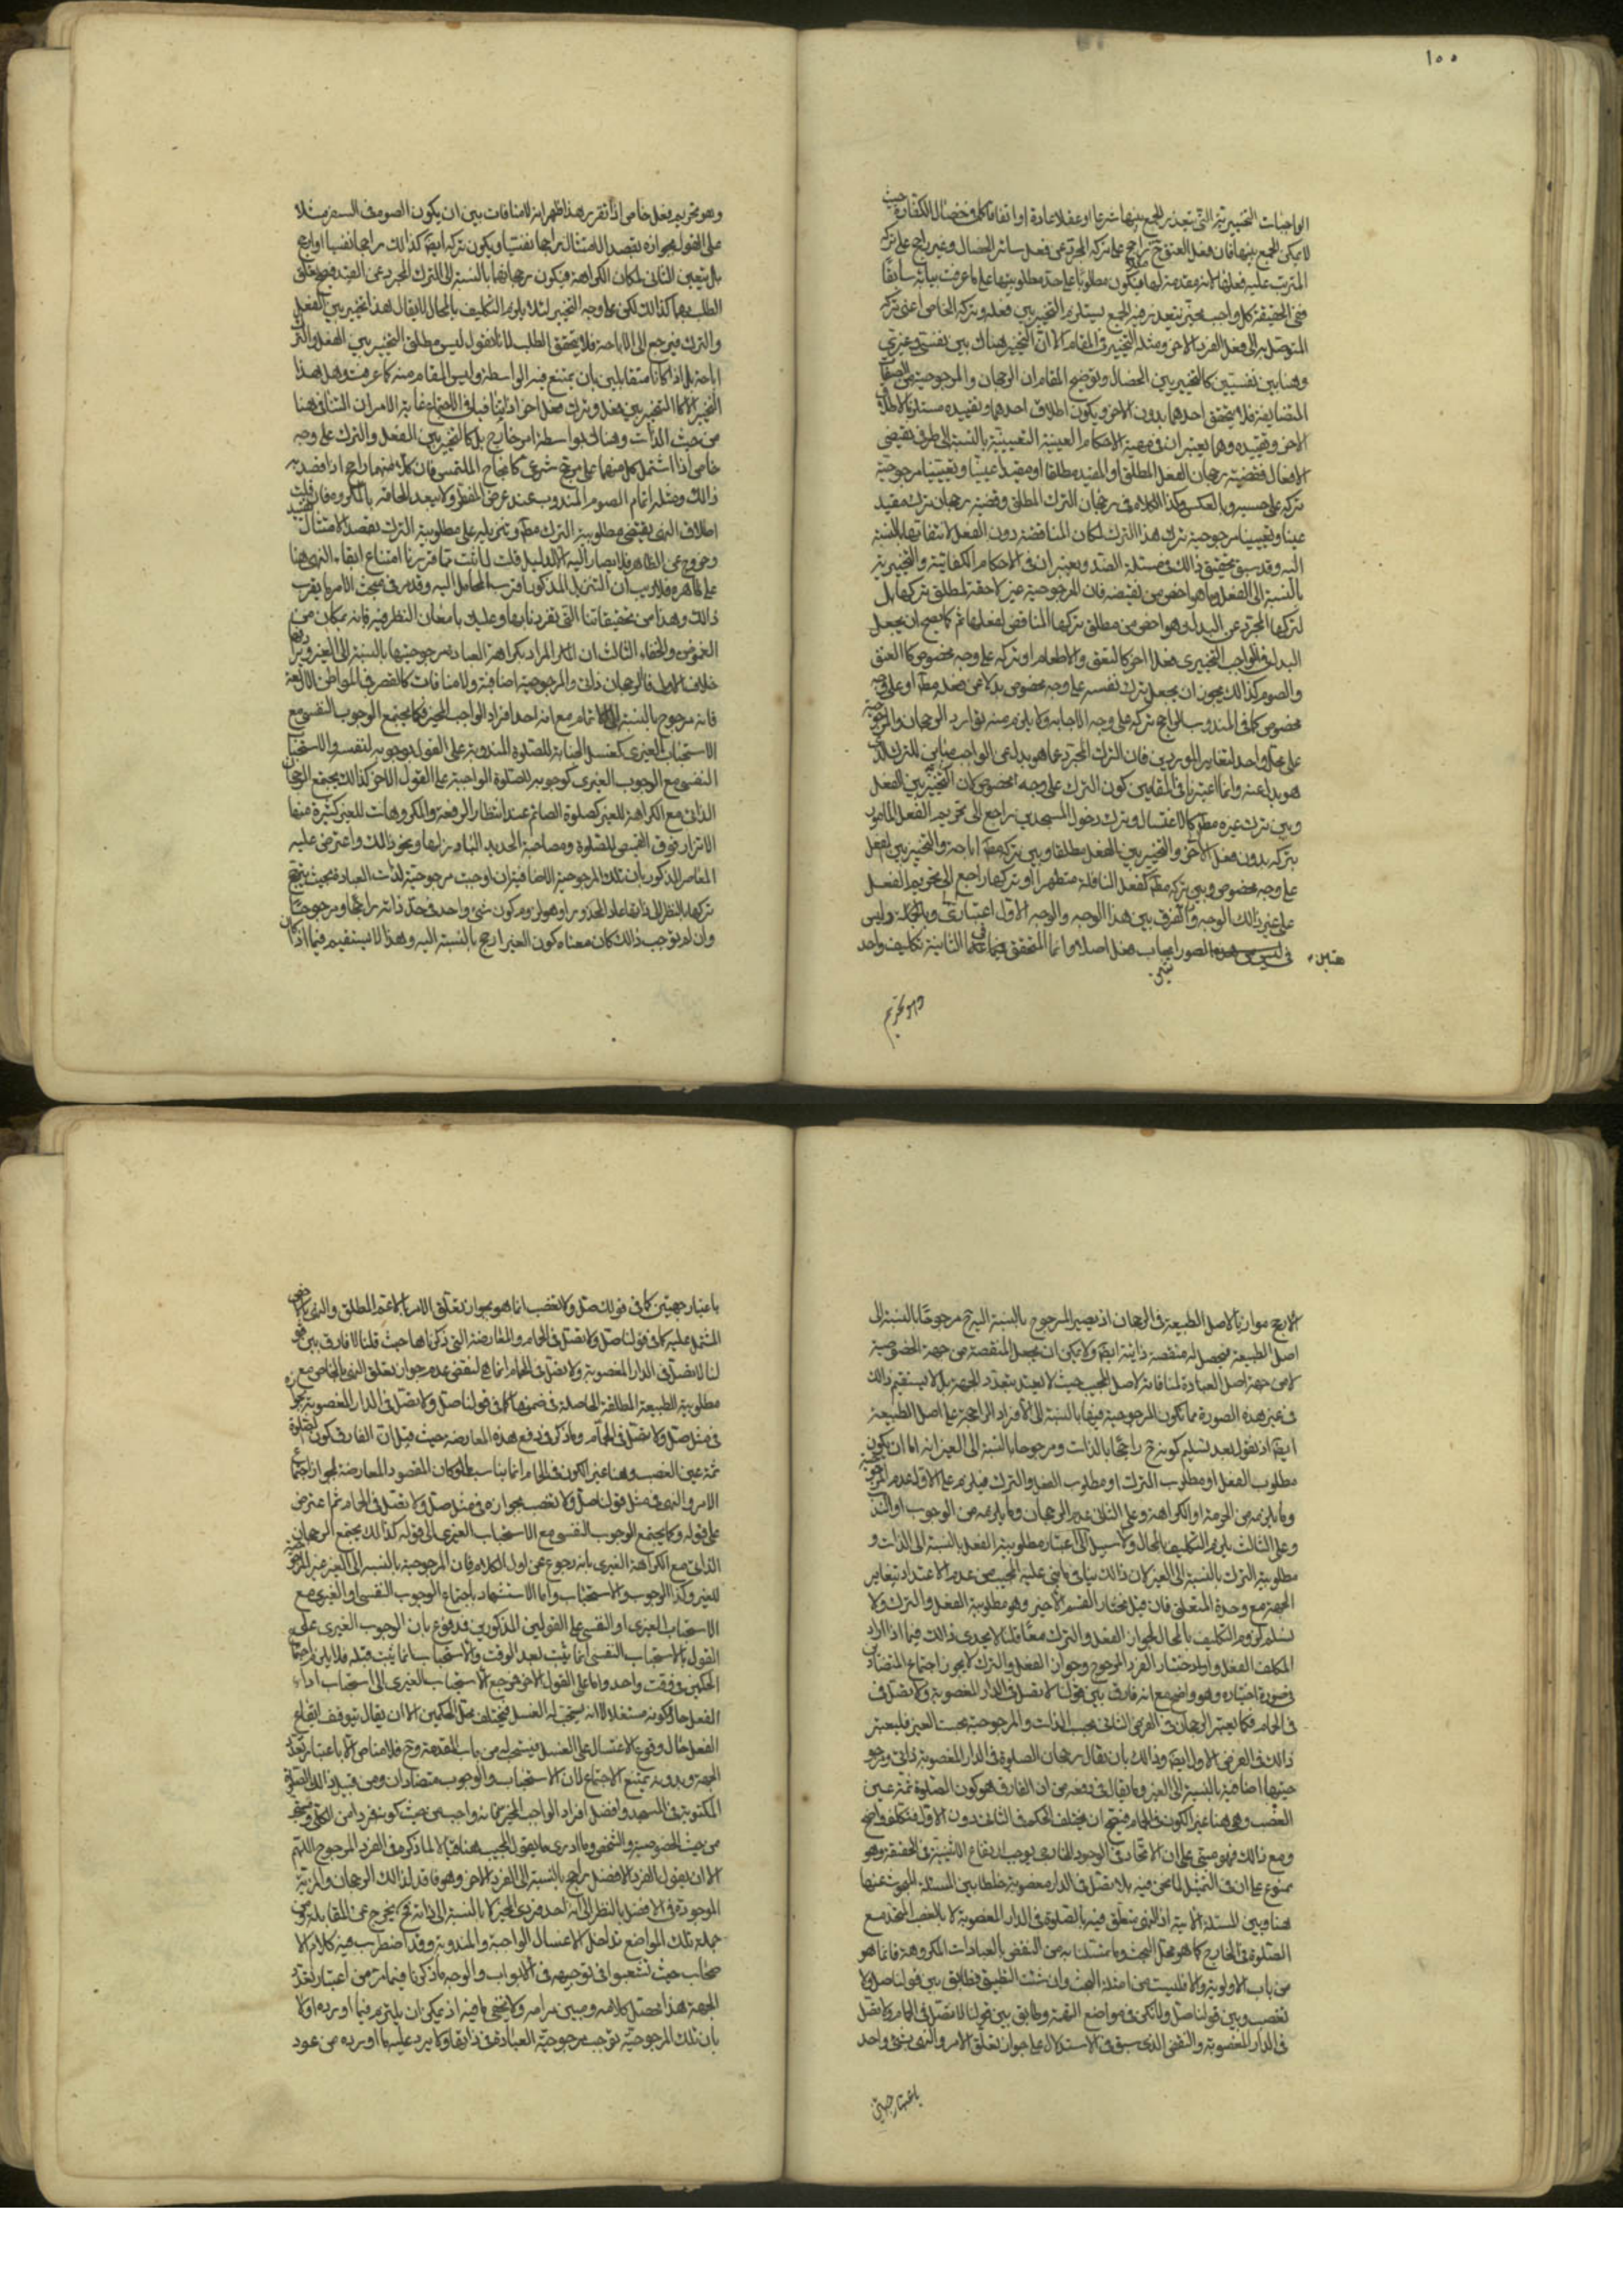 ١٠٠
الواجبات التخييرية التي يتعذر الجمع بينها شرعا او عقلا او عادة او اتفاقا كما في خصال الكفارة حيث
لا يمكن الجمع بينها فان فعل العتق ح راجح على تركه المجرد عن فعل سائر الخصال وغير راجح على تركه
المترتب عليه فعلها لانه مقدمة لها فيكون مطلوبا على حد مطلوبيتها على ما عرفت بيانه سابقا
ففي الحقيقة كل واجب تخييري يتعذر فيه الجمع يستلزم التخيير بين فعله وتركه الخاص اعني تركه
المتوصل به الى فعل الفرد الاخر ومثله التخيير في المقام الا ان التخيير هناك بين نفسي وغيري
وهنا بين نفسيين كالتخيير بين الخصال وتوضيح المقام ان الرجحان والمرجوحية من الصفات
المتضايفة فلا يتحقق احدهما بدون الاخر ويكون اطلاق احدهما وتقييده مستلزما لاطلاق
الاخر وتقييده وهما يعتبران في مهية الاحكام العينية التعيينية بالنسبة الى طرفي نقيضي
الافعال فقضية رجحان الفعل المطلق او المقيد مطلقا او مقيدا عينيا وتعيينيا مرجوحية
تركه على حسبه وبالعكس وكذا الكلام في رجحان الترك المطلق وقضية رجحان ترك مقيد
عينا وتعيينا مرجوحية ترك هذا الترك لمكان المناقضة دون الفعل لانتفائها بالنسبة
اليه وقد سبق تحقيق ذلك في مسئلة الضد ويعتبران في الاحكام الكفائية والتخييرية
بالنسبة الى الفعل وما هو اخص من نقيضه فان المرجوحية غير لاحقة لمطلق تركها بل
لتركها المجرد عن البدل وهو اخص من مطلق تركها المناقض لفعلها ثم كما يصح ان يجعل
البدل في الواجب التخييري فعلا اخر كالعتق والاطعام او تركه على وجه مخصوص كالعتق
والصوم كذلك يجوز ان يجعل ترك نفسه على وجه مخصوص بدلا عن فعله مطلقا او على وجه
مخصوص كما في المندوب الراجح تركه على وجه الاجابة ولا يلزم منه توارد الرجحان والمرجوحية
على محل واحد لتغاير الموردين فان الترك المجرد عما هو بدل عن الواجب مباين للترك الذي
هو بدل عنه وانما اعتبرنا في المقامين كون الترك على وجه مخصوص لان التخيير بين الفعل
وبين ترك غيره مطلقا كالاغتسال وترك دخول المسجدين راجع الى تحريم الفعل المأمور
بتركه بدون فعل الاخر والتخيير بين الفعل مطلقا وبين تركه مطلقا اباحة والتخيير بين الفعل
على وجه مخصوص وبين تركه مطلقا كفعل النافلة متطهرا او تركها راجع الى تحريم الفعل
على غير ذلك الوجه والفرق بين هذا الوجه والوجه الاول اعتباري وبالجملة وليس
في شئ من هذه الصور ايجاب فعل اصلا وانما المتحقق فيما عدا الثانية تكليف واحد
هتين
وهو تحريم
وهو تحريم فعل خاص اذا تقرر هذا ظهر انه لا منافات بين ان يكون الصوم في السفر مثلا
على القول بجوازه بقصد الامتثال راجحا نفسيا ويكون تركه ايضا كذلك راجحا نفسيا او ارجح
بل يتعين الثاني لمكان الكراهة فيكون رجحانهما بالنسبة الى الترك المجرد عن القصد فيصح تعلق
الطلب بهما كذلك لكن على وجه التخيير لئلا يلزم التكليف بالمحال لا يقال هذا تخيير بين الفعل
والترك فيرجع الى الاباحة فلا يتحقق الطلب لانا نقول ليس مطلق التخيير بين الفعل والترك
اباحة بل اذا كانا متقابلين بان يمتنع فيه الواسطة وليس المقام منه كما عرفت وهل هذا
التخيير الا كالتخيير بين فعل وترك فعل اخر اذا تنافيا في الاجتماع غاية الامر ان التنافي هنا
من حيث الذات وهناك بواسطة امر خارج بل كالتخيير بين الفعل والترك على وجه
خاص اذا اشتمل كل منهما على مرجح شرعي كانجاح الملتمس فان كلا منهما راجح اذا قصد به
ذلك ومثله اتمام الصوم المندوب عند عرض المفطر ولا يعد الحاقه بالمكروه فان قلت
اطلاق النهي يقتضي مطلوبية الترك مطلقا وتنزيله على مطلوبية الترك بقصد الامتثال تقييد
وخروج عن الظاهر فلا يصار اليه الا لدليل قلت لما ثبت مما قررنا امتناع ابقاء النهي هنا
على ظاهره فلا ريب ان التنزيل المذكور اقرب المحامل اليه وقد مر في مبحث الامر ما يقرب
ذلك وهذا من تحقيقاتنا التي تفردنا بها وعليك بامعان النظر فيه فانه بمكان من
الغموض والخفاء الثالث ان المراد بكراهة العبادة مرجوحيتها بالنسبة الى الغير ويراد رفعها
خلاف الاول فالرجحان ذاتي والمرجوحية اضافية ولا منافات كالقصر في المواطن الاربعة
فانه مرجوح بالنسبة الى الاتمام مع انه احد افراد الواجب المخير فكما يجتمع الوجوب النفسي مع
الاستحباب الغيري كغسل الجنابة للصلوة المندوبة على القول بوجوبه لنفسه والاستحباب
النفسي مع الوجوب الغيري كوجوبه للصلوة الواجبة على القول الاخر كذلك يجتمع الرجحان
الذاتي مع الكراهة للغير كصلوة الصائم عند انتظار الرفقة والمكروهات للغير كثيرة منها
الاتزار فوق القميص للصلوة ومصاحبة الحديد البارز لها ونحو ذلك واعترض عليه
المعاصر المذكور بان تلك المرجوحية الاضافية ان اوجبت مرجوحية لذات العبادة بحيث يترجح
تركها بالنظر الى ذاتها عاد المحذور وهو لزوم كون شئ واحد في حد ذاته راجحا ومرجوحا
وان لم توجب ذلك كان معناه كون الغير ارجح بالنسبة اليه وهذا لا يستقيم فيما اذا كان
الارجح موازيا لاصل الطبيعة في الرجحان اذ يصير المرجوح بالنسبة اليه ح مرجوحا بالنسبة الى
اصل الطبيعة فيحصل له منقصة ذاتية ايضا ولا يمكن ان يجعل المنقصة من جهة الخصوصية
لا من جهة اصل العبادة لمنافاته لاصل المجيب حيث لا يعتد بتعدد الجهة بل لا يستقيم ذلك
في غير هذه الصورة مما تكون المرجوحية فيها بالنسبة الى الافراد الراجحة على اصل الطبيعة
ايضا اذ نقول بعد تسليم كونه ح راجحا بالذات ومرجوحا بالنسبة الى الغير انه اما ان يكون
مطلوب الفعل او مطلوب الترك او مطلوب الفعل والترك فيلزم على الاول عدم المرجوحية
وما يلزمه من الحرمة او الكراهة وعلى الثاني عدم الرجحان وما يلزمه من الوجوب او الندب
وعلى الثالث يلزم التكليف بالمحال ولا سبيل الى اعتبار مطلوبية الفعل بالنسبة الى الذات و
مطلوبية الترك بالنسبة الى الغير لان ذلك ينافي ما بنى عليه المجيب من عدم الاعتداد بتغاير
الجهة مع وحدة المتعلق فان قيل نختار القسم الاخير وهو مطلوبية الفعل والترك ولا
نسلم لزوم التكليف بالمحال لجواز الفعل والترك معا قلنا لا يجدي ذلك فيما اذا اراد
المكلف الفعل واراد اختيار الفرد المرجوح وجواز الفعل والترك لا يجوز اجتماع المتضادين
في صورة اختياره وهو واضح مع انه فارق بين قولنا لا تصل في الدار المغصوبة ولا تصل في
في الحمام فكما يعتبر الرجحان في الفرض الثاني بحسب الذات والمرجوحية بحسب الغير فليعتبر
ذلك في الفرض الاول ايضا وذلك بان يقال رجحان الصلوة في الدار المغصوبة ذاتي ومرجو
حيتها اضافية بالنسبة الى الغير وما يقال في دفعه من ان الفارق هو كون الصلوة ثمة عين
الغصب وهي هنا غير الكون في الحمام فيتجه ان يختلف الحكم في الثاني دون الاول فتكلف واضح
ومع ذلك فهو مبني على ان الاتحاد في الوجود الخارجي يوجب ارتفاع الاثنينية في الحقيقة وهو
ممنوع على ان في التمثيل لما نحن فيه بلا تصل في الدار المغصوبة خلطا بين المسئلة المبحوث عنها
هنا وبين المسئلة الاتية اذ النهي متعلق فيه بالصلوة في الدار المغصوبة لا بالغصب المتحد مع
الصلوة في الخارج كما هو محل البحث وما تمسكنا به من النقض بالعبادات المكروهة فانما هو
من باب الاولوية والا فليست من امثلة البحث وان شئت التطبيق فطابق بين قولنا صل ولا
تغصب وبين قولنا صل ولا تكن في مواضع التهمة وطابق بين قولنا لا تصل في الحمام ولا تصل
في الدار المغصوبة والنقض الذي سبق في الاستدلال على جواز تعلق الامر والنهي بشئ واحد
باعتبار جهتين
باعتبار جهتين كما في قولك صل ولا تغصب انما هو بجواز تعلق الامر بالاعم المطلق والنهي بالاخص
المشتمل عليه كما في قولنا صل ولا تصل في الحمام والمعارضة التي ذكرناها حيث قلنا لا فارق بين قو
لنا لا تصل في الدار المغصوبة ولا تصل في الحمام انما هي لنقض عدم جواز تعلق النهي بالخاص مع
مطلوبية الطبيعة المطلقة الحاصلة في ضمنها كما في قولنا صل ولا تصل في الدار المغصوبة بجوازه
في مثل صل ولا تصل في الحمام وما ذكر في دفع هذه المعارضة حيث قيل ان الفارق كون الصلوة
ثمة عين الغصب وهنا غير الكون في الحمام انما يناسب لو كان المقصود المعارضة لجواز اجتماع
الامر والنهي في مثل قولنا صل ولا تغصب بجوازه في مثل صل ولا تصل في الحمام ثم اعترض
على قوله وكما يجتمع الوجوب النفسي مع الاستحباب الغيري الى قوله كذلك يجتمع الرجحان
الذاتي مع الكراهة الغيري بانه رجوع عن اول الكلام فان المرجوحية بالنسبة الى الغير غير المرجوحية
للغير وكذا الوجوب والاستحباب واما الاستشهاد باجتماع الوجوب النفسي او الغيري مع
الاستحباب الغيري او النفسي على القولين المذكورين فمدفوع بان الوجوب الغيري على
القول بالاستحباب النفسي انما يثبت بعد الوقت والاستحباب انما يثبت قبله فلا يلزم اجتماع
الحكمين في وقت واحد واما على القول الاخر فمرجع الاستحباب الغيري الى استحباب اداء
الفعل حال كونه مغتسلا لا انه يستحب له الغسل فيختلف محل الحكمين الا ان يقال يتوقف ايقاع
الفعل حال وقوع الاغتسال على الغسل فيستحب له من باب المقدمة وح فلا مناص الا باعتبار تعدد
الجهة وبدونه يمتنع الاجتماع لان الاستحباب والوجوب متضادان ومن قبيل ذلك الصلوة
المكتوبة في المسجد وافضل افراد الواجب المخير فانه واجب من حيث كونه فردا من الكلي ومستحب
من حيث الخصوصية والشخص وما ادري ما يقول المجيب هنا قبالا لما ذكره في الفرد المرجوح اللهم
الا ان يقول الفرد الافضل راجح بالنسبة الى الفرد الاخر وهو فاقد لذلك الرجحان والمزية
الموجودة في الافضل بالنظر الى انه احد فردي المخير لا بالنسبة الى ذاته فح يخرج عن المقابلة ومن
جملة تلك المواضع تداخل الاغسال الواجبة والمندوبة وقد اضطرب فيه كلام الا
صحاب حيث تشعبوا في توجيهه في الابواب والوجه ما ذكرنا فيما مر من اعتبار تعدد
الجهة هذا محصل كلامه ومبين مرامه ولا يخفى ما فيه اذ يمكن ان يلتزم فيما اورده اولا
بان تلك المرجوحية توجب مرجوحية العبادة في ذاتها ولا يرد عليه ما اورده من عود